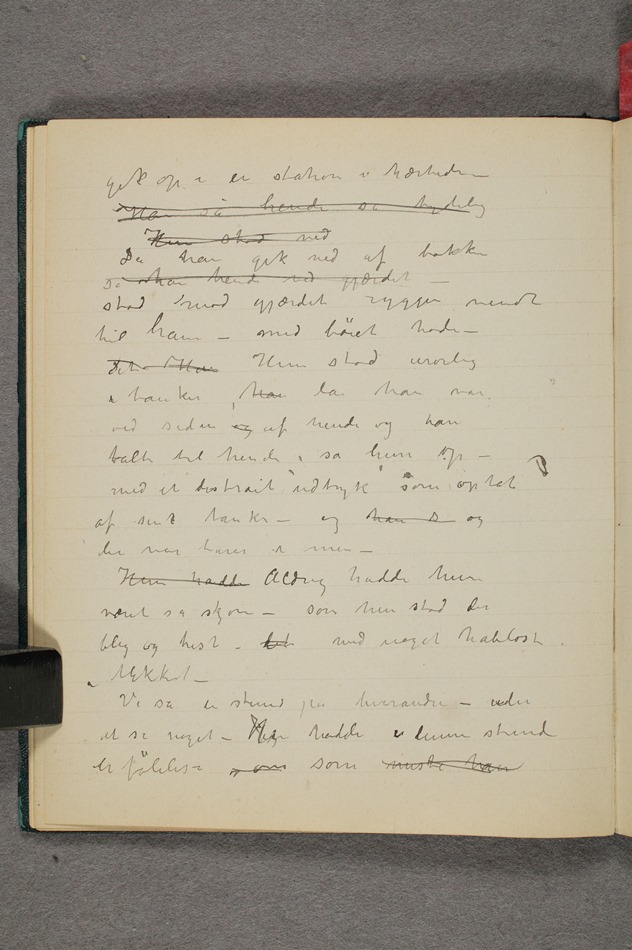 gik op i en station i nærheden
Han så hende så tydelig
Hun stod ned
Da han gik ned af bakke
Da han hende ved gjærdet –
stod mod gjærdet ryggen vendt
til ham – med böiet hode –
Hun stod urorlig
i tanker han da han var
ved siden og af hende og han
talte til hende, så hun op –
med et distrait udtryk som optat
af sine tanker – og han s og
der var tårer i
Hun hadde Aldrig hadde hun
været så skjøn – som hun stod der
bleg og træt – det med noget håbløst
i blikket –
Vi så en stund på hverandre – uden
at se noget – Jeg hadde i denne stund
en følelse som som